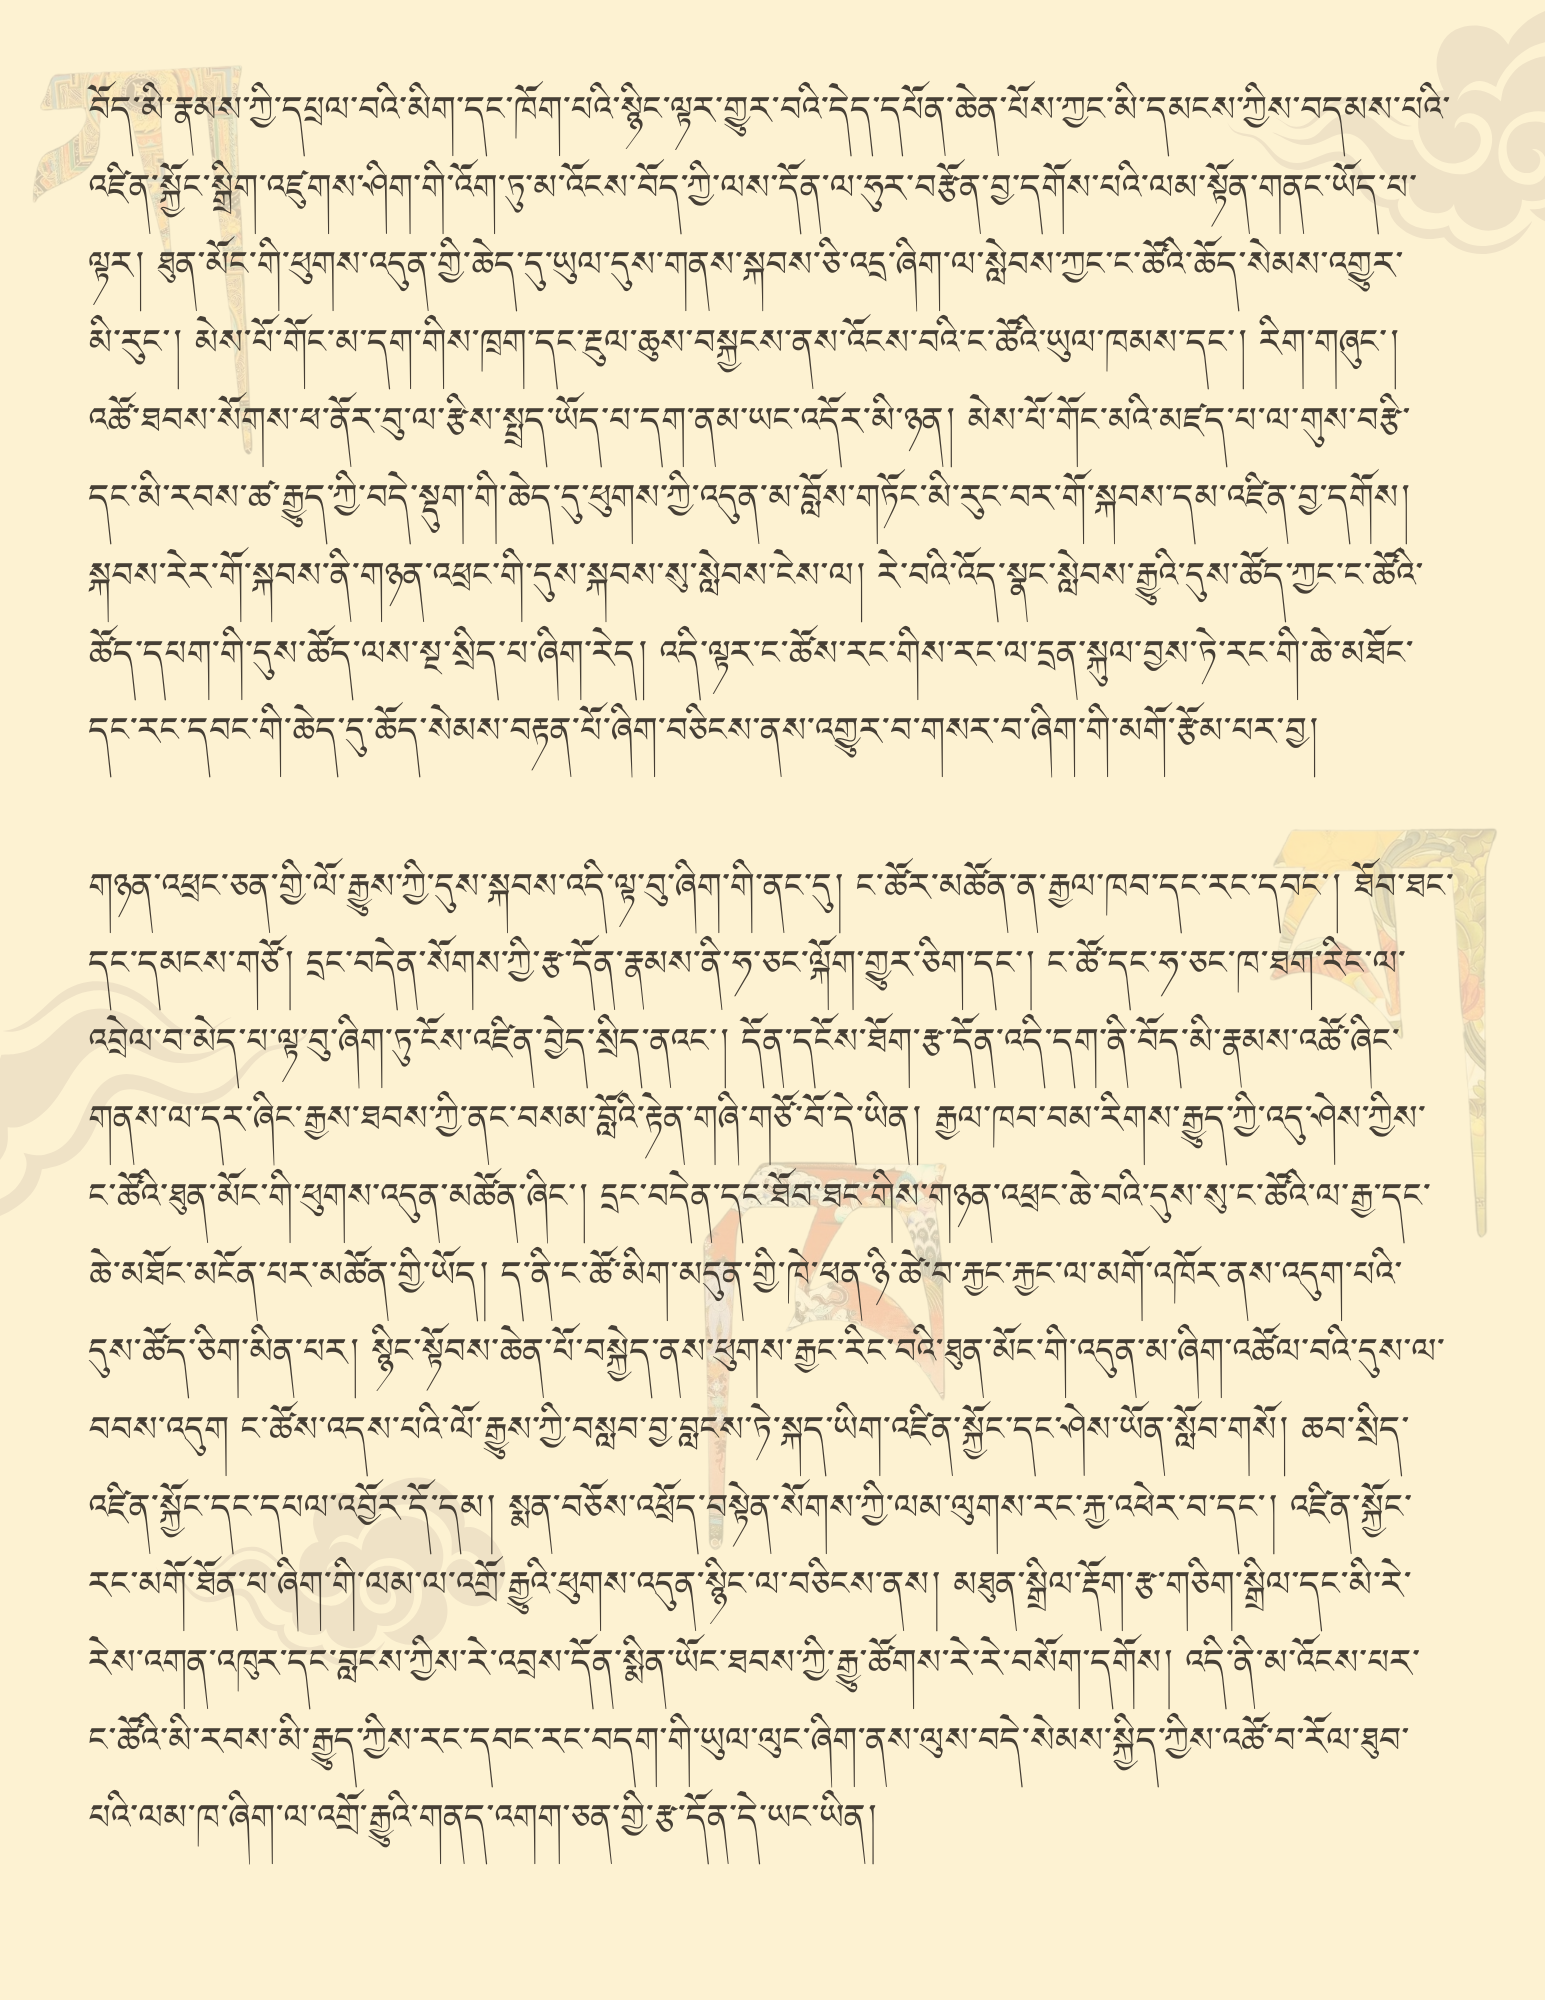 བོད་མི་རྣམས་ཀྱི་དཔྲལ་བའི་མིག་དང་ཁོག་པའི་སྙིང་ལྟར་གྱུར་བའི་དེད་དཔོན་ཆེན་པོས་ཀྱང་མི་དམངས་ཀྱིས་བདམས་པའི་
འཛིན་སྐྱོང་སྒྲིག་འཛུགས་ཤིག་གི་འོག་ཏུ་མ་འོངས་བོད་ཀྱི་ལས་དོན་ལ་ཧུར་བརྩོན་བྱ་དགོས་པའི་ལམ་སྟོན་གནང་ཡོད་པ་
ལྟར། ཐུན་མོང་གི་ཕུགས་འདུན་གྱི་ཆེད་དུ་ཡུལ་དུས་གནས་སྐབས་ཅི་འདྲ་ཞིག་ལ་སླེབས་ཀྱང་ང་ཚོའི་ཆོད་སེམས་འགྱུར་
མི་རུང་། མེས་པོ་གོང་མ་དག་གིས་ཁྲག་དང་རྔུལ་ཆུས་བསྐྱངས་ནས་འོངས་བའི་ང་ཚོའི་ཡུལ་ཁམས་དང་། རིག་གཞུང་།
འཚོ་ཐབས་སོགས་ཕ་ནོར་བུ་ལ་རྩིས་སྤྲད་ཡོད་པ་དག་ནམ་ཡང་འདོར་མི་ཉན། མེས་པོ་གོང་མའི་མཛད་པ་ལ་གུས་བརྩི་
དང་མི་རབས་ཚ་རྒྱུད་ཀྱི་བདེ་སྡུག་གི་ཆེད་དུ་ཕུགས་ཀྱི་འདུན་མ་བློས་གཏོང་མི་རུང་བར་གོ་སྐབས་དམ་འཛིན་བྱ་དགོས།
སྐབས་རེར་གོ་སྐབས་ནི་གཉན་འཕྲང་གི་དུས་སྐབས་སུ་སླེབས་ངེས་ལ། རེ་བའི་འོད་སྣང་སླེབས་རྒྱུའི་དུས་ཚོད་ཀྱང་ང་ཚོའི་
ཚོད་དཔག་གི་དུས་ཚོད་ལས་སྔ་སྲིད་པ་ཞིག་རེད། འདི་ལྟར་ང་ཚོས་རང་གིས་རང་ལ་དྲན་སྐུལ་བྱས་ཏེ་རང་གི་ཆེ་མཐོང་
དང་རང་དབང་གི་ཆེད་དུ་ཆོད་སེམས་བརྟན་པོ་ཞིག་བཅིངས་ནས་འགྱུར་བ་གསར་བ་ཞིག་གི་མགོ་རྩོམ་པར་བྱ།
གཉན་འཕྲང་ཅན་གྱི་ལོ་རྒྱུས་ཀྱི་དུས་སྐབས་འདི་ལྟ་བུ་ཞིག་གི་ནང་དུ། ང་ཚོར་མཚོན་ན་རྒྱལ་ཁབ་དང་རང་དབང་། ཐོབ་ཐང་
དང་དམངས་གཙོ། དྲང་བདེན་སོགས་ཀྱི་རྩ་དོན་རྣམས་ནི་ཧ་ཅང་ལྐོག་གྱུར་ཅིག་དང་། ང་ཚོ་དང་ཧ་ཅང་ཁ་ཐག་རིང་ལ་
འབྲེལ་བ་མེད་པ་ལྟ་བུ་ཞིག་ཏུ་ངོས་འཛིན་བྱེད་སྲིད་ནའང་། དོན་དངོས་ཐོག་རྩ་དོན་འདི་དག་ནི་བོད་མི་རྣམས་འཚོ་ཞིང་
གནས་ལ་དར་ཞིང་རྒྱས་ཐབས་ཀྱི་ནང་བསམ་བློའི་རྟེན་གཞི་གཙོ་བོ་དེ་ཡིན། རྒྱལ་ཁབ་བམ་རིགས་རྒྱུད་ཀྱི་འདུ་ཤེས་ཀྱིས་
ང་ཚོའི་ཐུན་མོང་གི་ཕུགས་འདུན་མཚོན་ཞིང་། དྲང་བདེན་དང་ཐོབ་ཐང་གིས་གཉན་འཕྲང་ཆེ་བའི་དུས་སུ་ང་ཚོའི་ལ་རྒྱ་དང་
ཆེ་མཐོང་མངོན་པར་མཚོན་གྱི་ཡོད། ད་ནི་ང་ཚོ་མིག་མདུན་གྱི་ཁེ་ཕན་ཉི་ཚེ་བ་རྐྱང་རྐྱང་ལ་མགོ་འཁོར་ནས་འདུག་པའི་
དུས་ཚོད་ཅིག་མིན་པར། སྙིང་སྟོབས་ཆེན་པོ་བསྐྱེད་ནས་ཕུགས་རྒྱང་རིང་བའི་ཐུན་མོང་གི་འདུན་མ་ཞིག་འཚོལ་བའི་དུས་ལ་
བབས་འདུག ང་ཚོས་འདས་པའི་ལོ་རྒྱུས་ཀྱི་བསླབ་བྱ་བླངས་ཏེ་སྐད་ཡིག་འཛིན་སྐྱོང་དང་ཤེས་ཡོན་སློབ་གསོ། ཆབ་སྲིད་
འཛིན་སྐྱོང་དང་དཔལ་འབྱོར་དོ་དམ། སྨན་བཅོས་འཕྲོད་བསྟེན་སོགས་ཀྱི་ལམ་ལུགས་རང་རྐྱ་འཕེར་བ་དང་། འཛིན་སྐྱོང་
རང་མགོ་ཐོན་པ་ཞིག་གི་ལམ་ལ་འགྲོ་རྒྱུའི་ཕུགས་འདུན་སྙིང་ལ་བཅིངས་ནས། མཐུན་སྒྲིལ་རྡོག་རྩ་གཅིག་སྒྲིལ་དང་མི་རེ་
རེས་འགན་འཁུར་དང་བླངས་ཀྱིས་རེ་འབྲས་དོན་སྨིན་ཡོང་ཐབས་ཀྱི་རྒྱུ་ཚོགས་རེ་རེ་བསོག་དགོས། འདི་ནི་མ་འོངས་པར་
ང་ཚོའི་མི་རབས་མི་རྒྱུད་ཀྱིས་རང་དབང་རང་བདག་གི་ཡུལ་ལུང་ཞིག་ནས་ལུས་བདེ་སེམས་སྐྱིད་ཀྱིས་འཚོ་བ་རོལ་ཐུབ་
པའི་ལམ་ཁ་ཞིག་ལ་འགྲོ་རྒྱུའི་གནད་འགག་ཅན་གྱི་རྩ་དོན་དེ་ཡང་ཡིན།